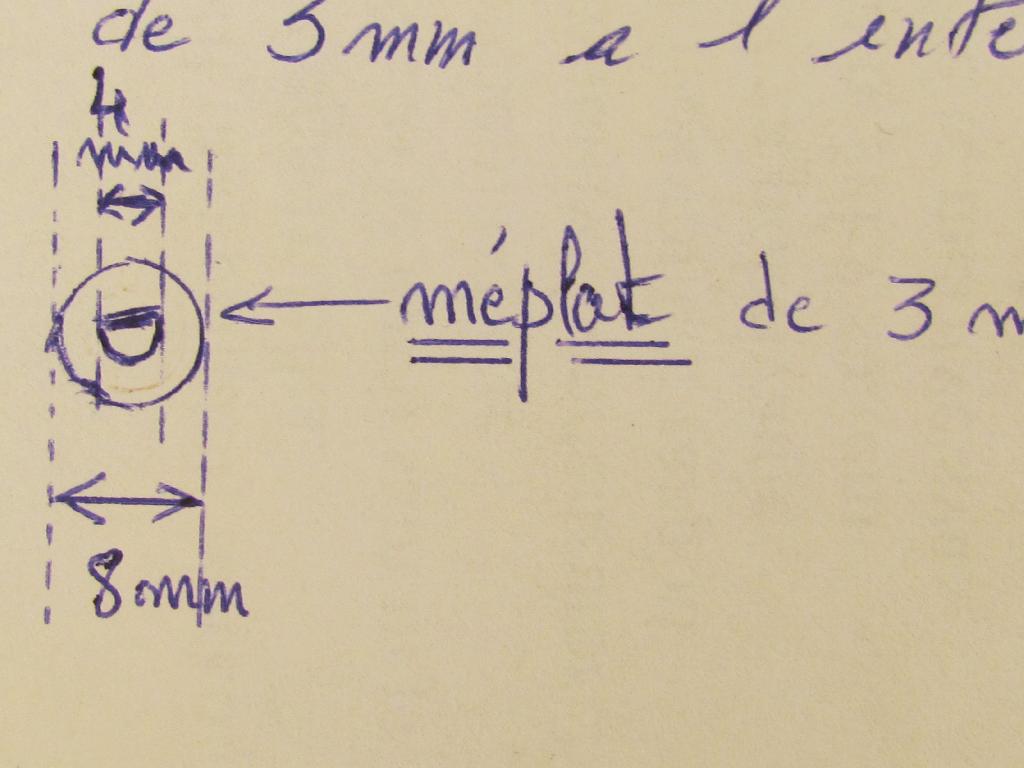 de 3mm a l inte
4
mm
méplat de 3 m
8mm